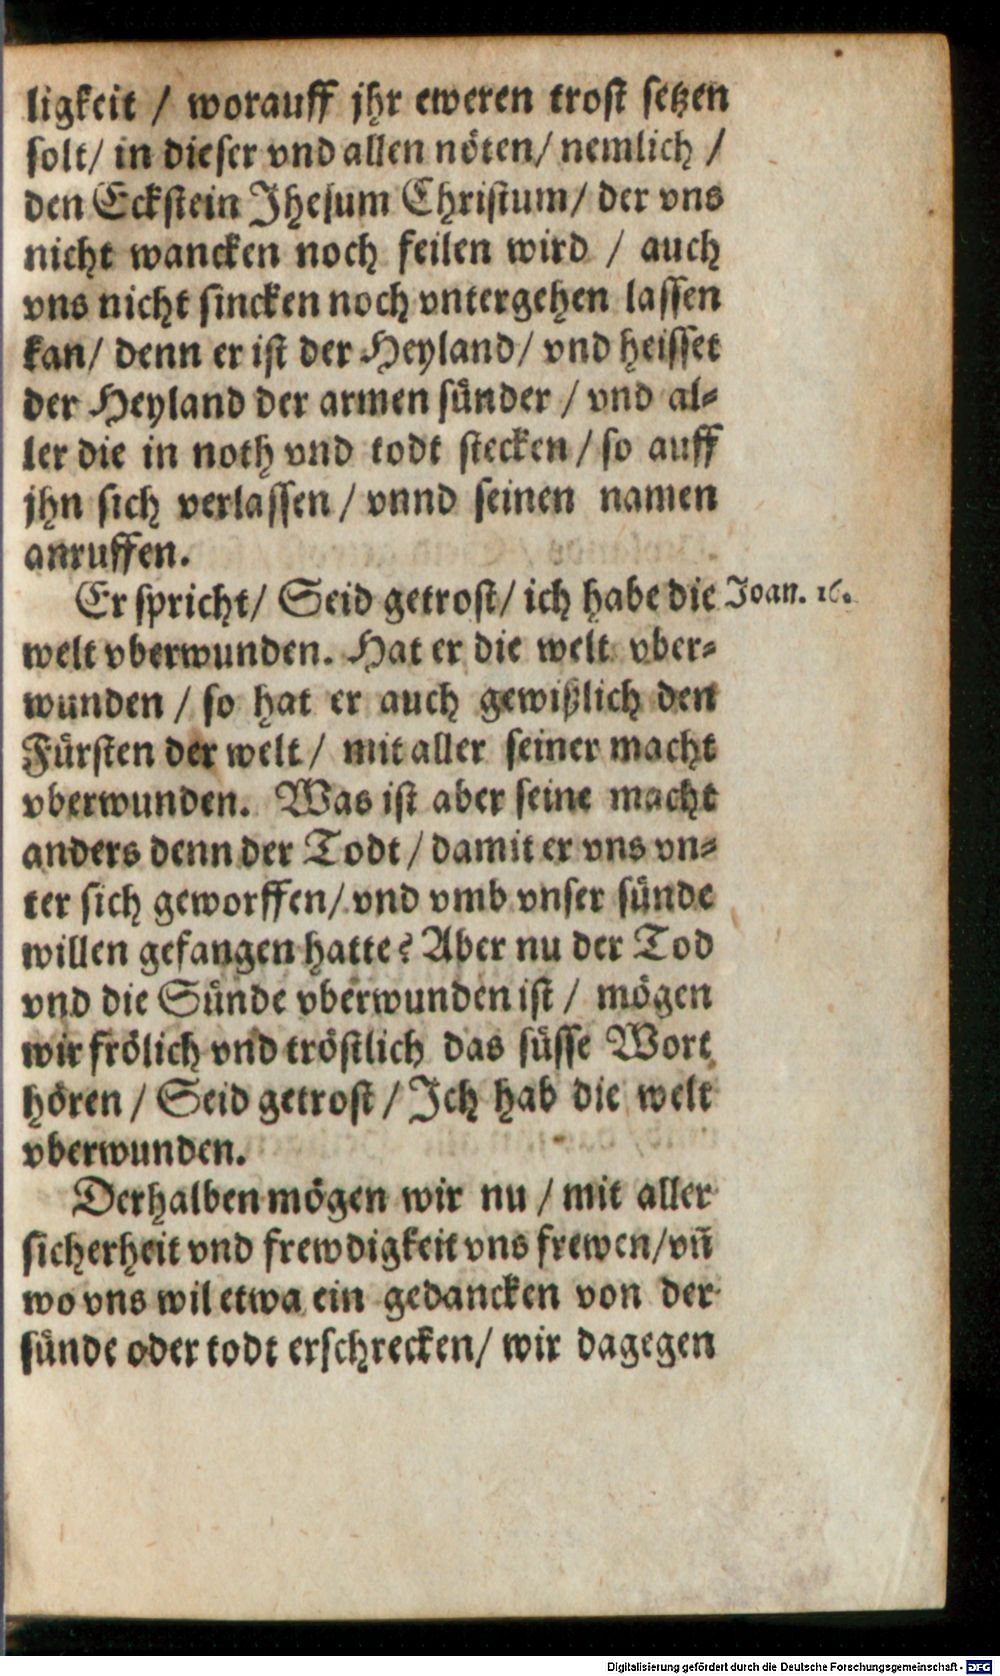 ligkeit / worauff jhr eweren trost setzen
solt/ in dieser vnd allen nöten/ nemlich /
den Eckstein Jhesum Christum/ der vns
nicht wancken noch feilen wird / auch
vns nicht sincken noch vntergehen lassen
kan/ denn er ist der Heyland/ vnd heisset
der Heyland der armen sünder / vnd al-
ler die in noth vnd todt stecken / so auff
jhn sich verlassen / vnnd seinen namen
anruffen.
Er spricht/ Seid getrost/ ich habe die Joan. 16.
welt vberwunden. Hat er die welt vber-
wunden / so hat er auch gewißlich den
Fürsten der welt / mit aller seiner macht
vberwunden. Was ist aber seine macht
anders denn der Todt / damit er vns vn-
ter sich geworffen/ vnd vmb vnser sünde
willen gefangen hatte? Aber nu der Tod
vnd die Sünde vberwunden ist / mögen
wir frölich vnd tröstlich das süsse Wort
hören / Seid getrost / Jch hab die welt
vberwunden.
Derhalben mögen wir nu / mit aller
sicherheit vnd frewdigkeit vns frewen/ vñ
wo vns wil etwa ein gedancken von der
sünde oder todt erschrecken/ wir dagegen
Digitalisierung gefördert durch die Deutsche Forschungsgemeinschaft - DFG